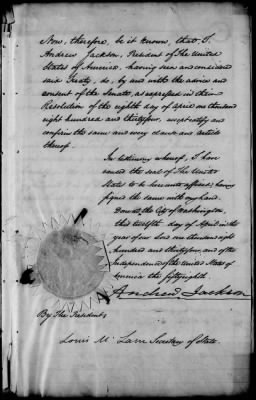 Now, therefore, be it known, that I,
Andrew Jackson, President of The United
States of America, having seen and considered
said Treaty, do, by and with the advice and
consent of the Senate, as expressed in their
Resolution of the eighth day of April one thousand
eight hundred and thirtyfour, accept, ratify and
confirm the same and every clause and article
thereof.
In testimony whereof, I have
caused the seal of The United
States to be hereunto affixed; having
signed the same with my hand.
Done at the City of Washington
this twelfth day of April in the
year of our Lord one thousand eight
hundred and thirtyfour, and of the
Independence of the United States of
America the fifty eighth.
Andrew Jackson
By The President:
Louis McLane Secretary of State.